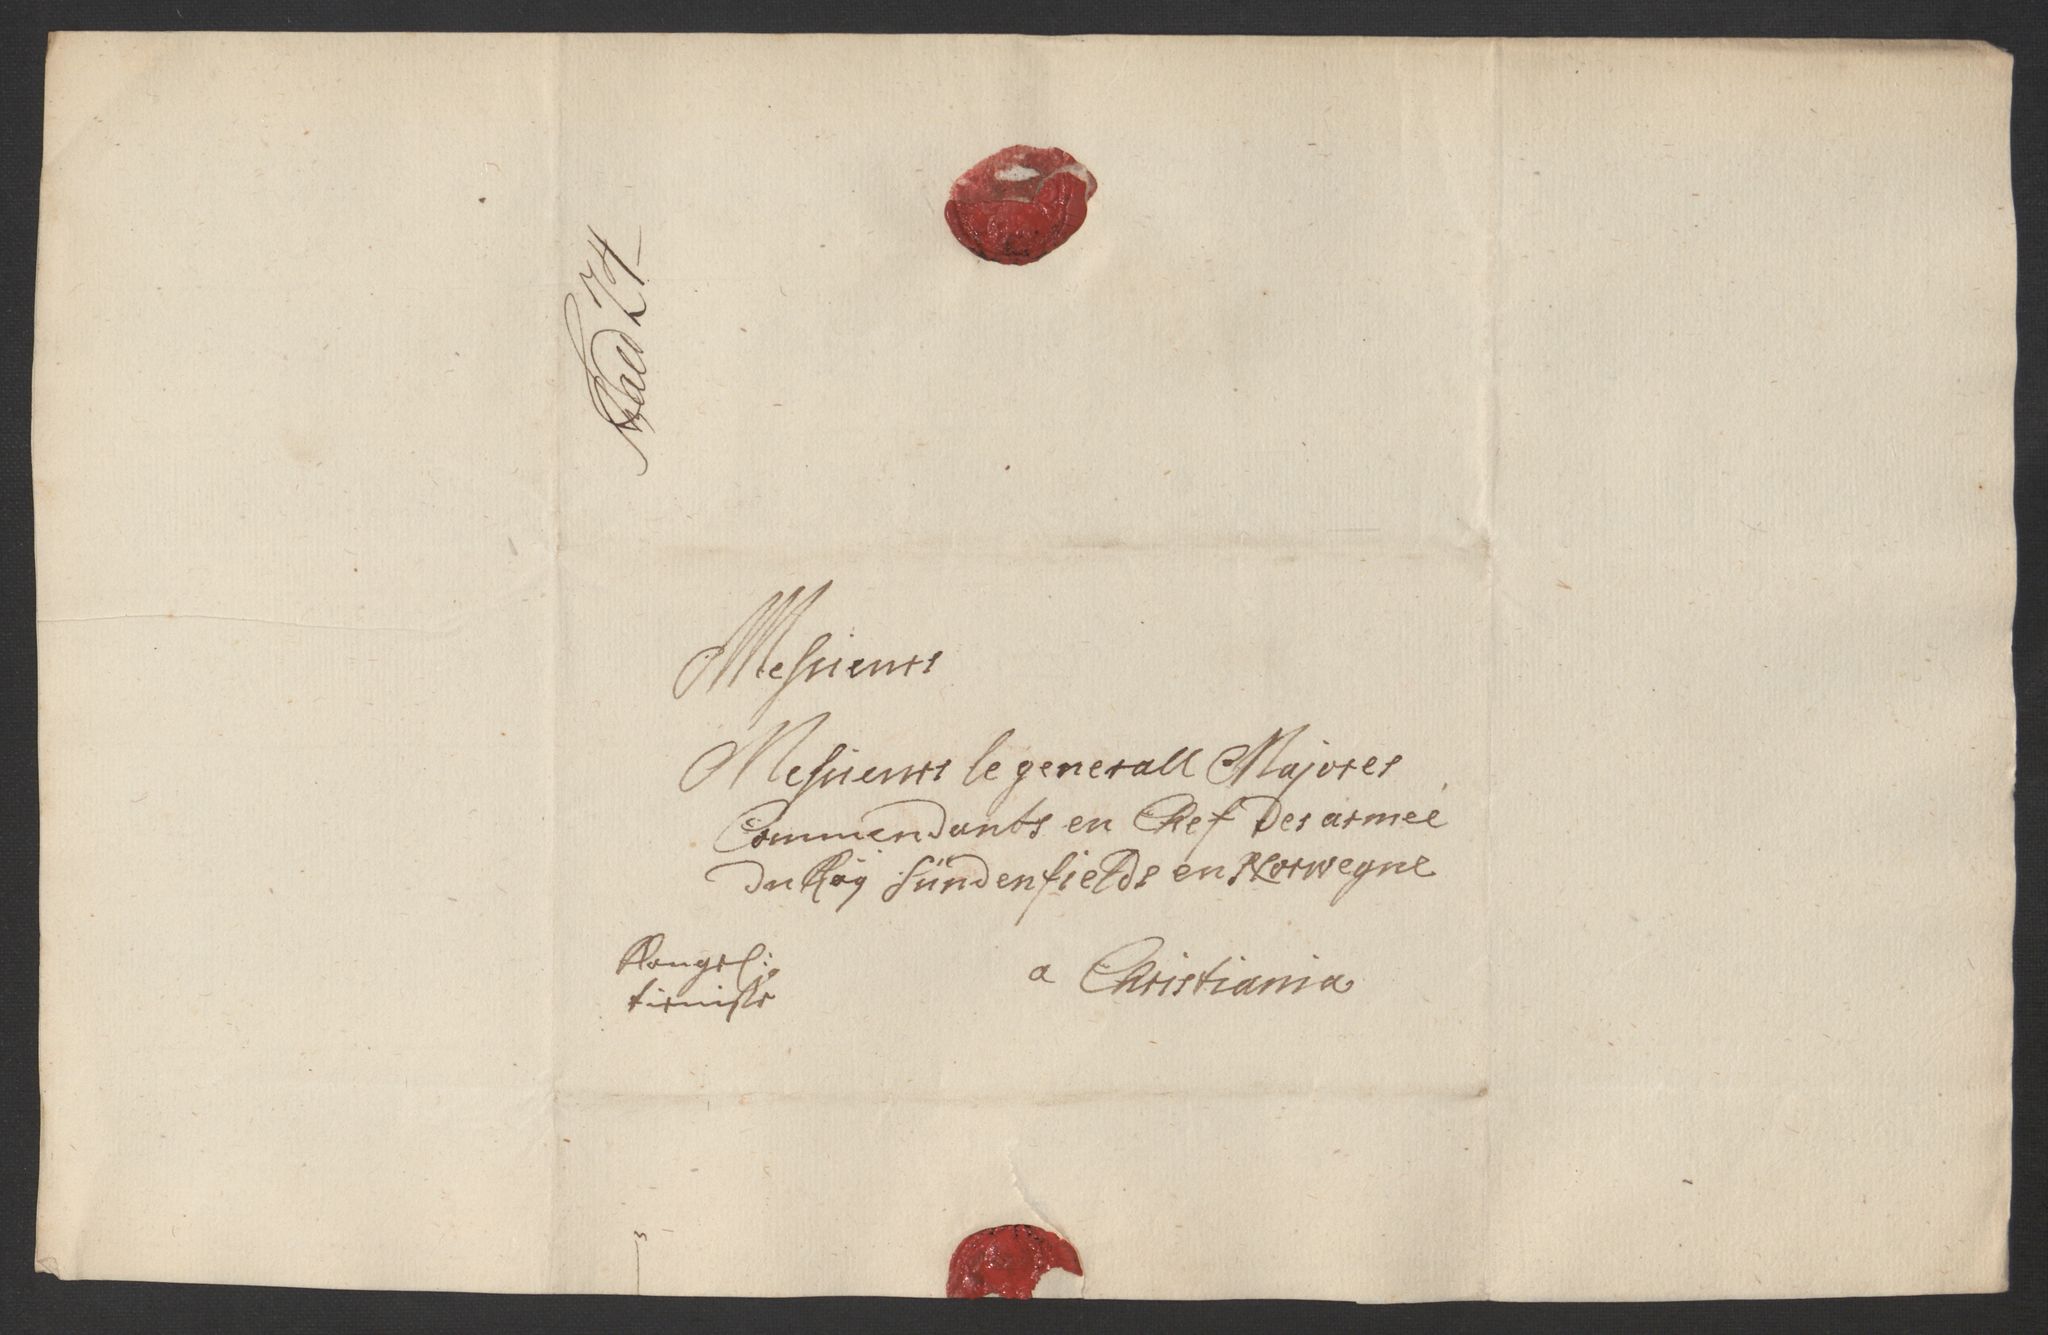 Messieurs
Messieurs le generall Majores
Commendants en Chef Des armeé
Du Roÿ sündenfields en Norwegne
Kongel:
tieniste
a Christiania
74